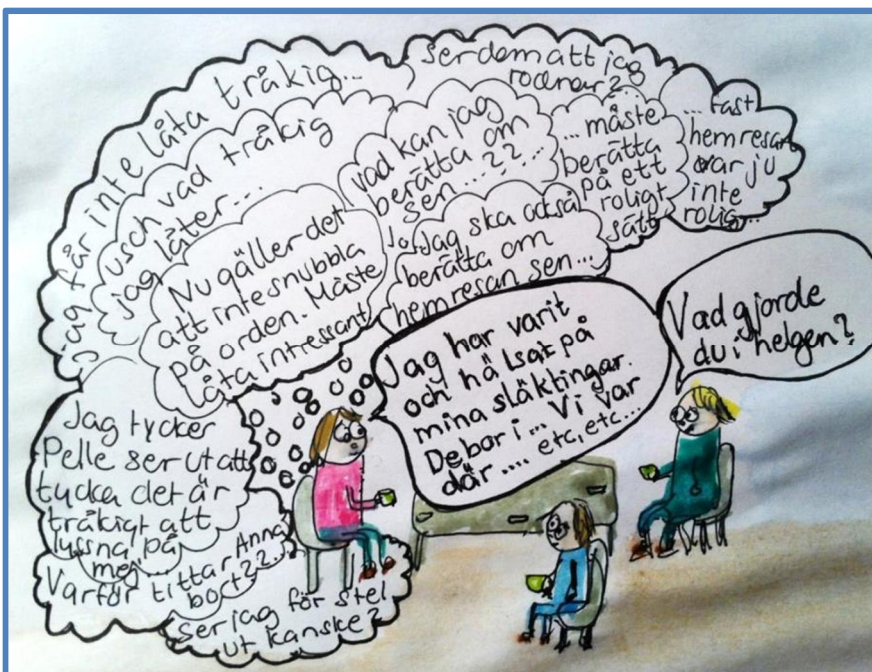 Jag får inte låta tråkig...
usch vad tråkig
jag låter...
Nu gäller det
att inte snubbla
på orden. Måste
låta intressant
Ser dom att jag
rodnar?
vad kan jag
berätta om
sen...??...
...måste
berätta
på ett
roligt
sätt
...fast
hemresan
var ju
inte
rolig...
Jag ska också
berätta om
hemresan sen...
Jag tycker
Pelle ser ut att
tycka det är
tråkigt att
lyssna på
mej
Varför tittar Anna
bort??...
Ser jag för stel
ut kanske?
Vad gjorde
du i helgen?
Jag har varit
och hälsat på
mina släktingar.
De bor i... Vi var
där.... etc, etc....